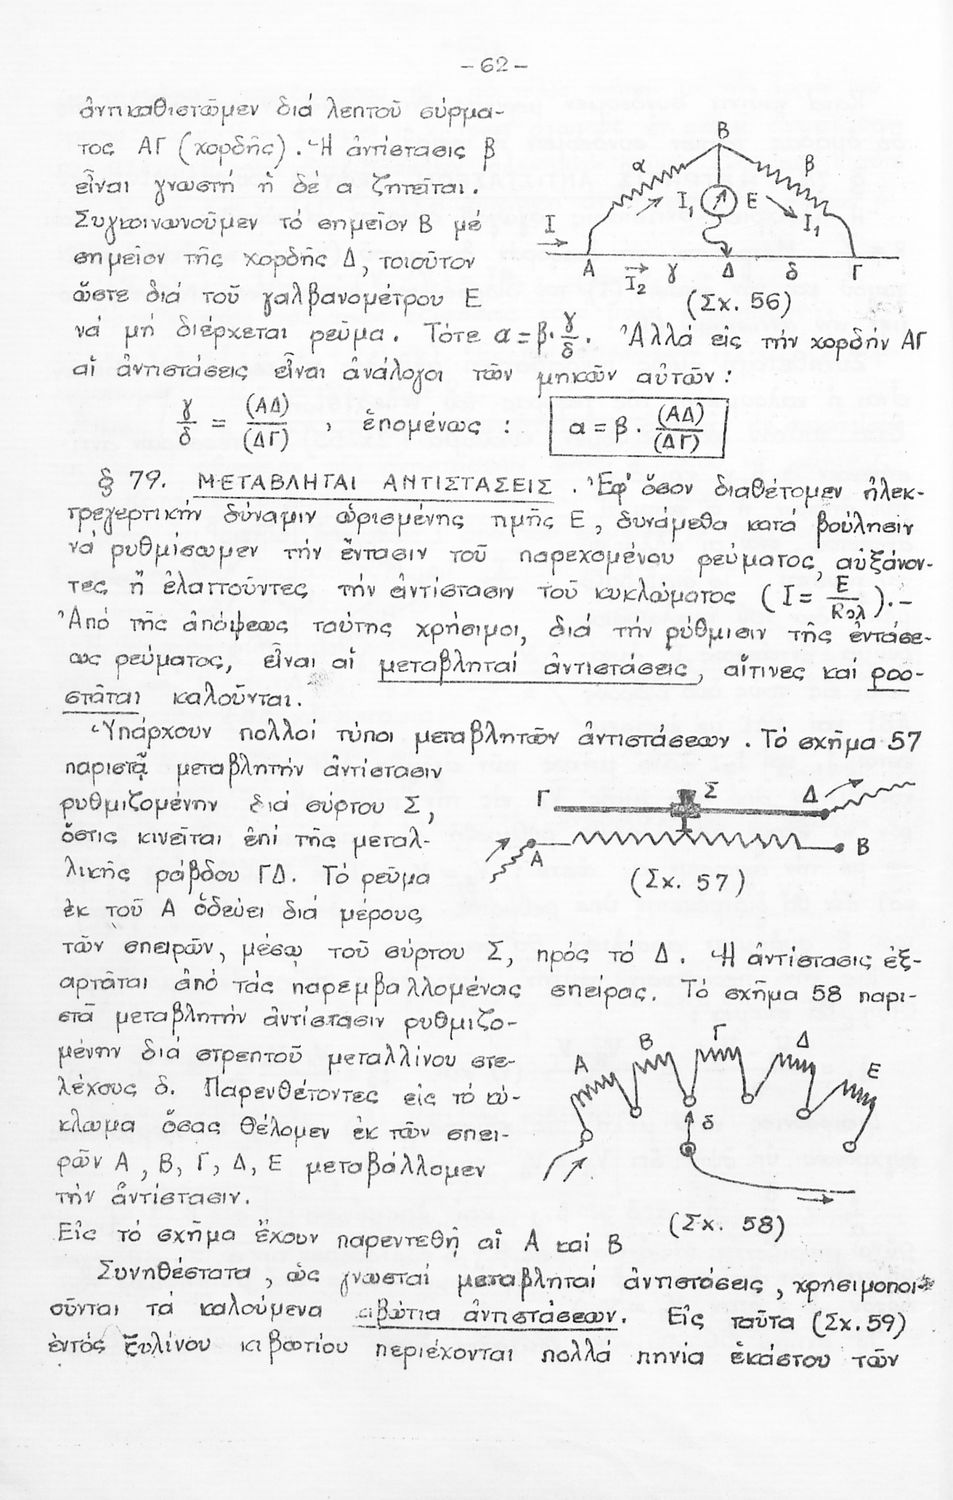 -62-
ἀντικαθιστῶμεν διά λεπτοῦ σύρμα-
τος ΑΓ (χορδῆς). Ἡ ἀντίστασις β
εἶναι γνωστή ἡ δέ α ζητεῖται.
Συγκοινωνοῦμεν τό σημεῖον Β μέ
σημεῖον τῆς χορδῆς Δ, τοιοῦτον
ὥστε διά τοῦ γαλβανομέτρου Ε
νά μή διέρχεται ρεῦμα. Τότε α = β·γ/δ. Ἀλλά εἰς τήν χορδήν ΑΓ
αἱ ἀντιστάσεις εἶναι ἀνάλογοι τῶν μηκῶν αὐτῶν:
Β
α β
I I₁ Ε I₁
Α I₂ γ Δ δ Γ
(Σχ. 56)
γ/δ = (ΑΔ)/(ΔΓ) , ἑπομένως : α = β · (ΑΔ)/(ΔΓ)
§ 79. ΜΕΤΑΒΛΗΤΑΙ ΑΝΤΙΣΤΑΣΕΙΣ. Ἐφ' ὅσον διαθέτομεν ἠλεκ-
τρεγερτικήν δύναμιν ὡρισμένης τιμῆς Ε, δυνάμεθα κατά βούλησιν
νά ρυθμίσωμεν τήν ἔντασιν τοῦ παρεχομένου ρεύματος, αὐξάνον-
τες ἤ ἐλαττοῦντες τήν ἀντίστασιν τοῦ κυκλώματος (I = Ε/Rολ).-
Ἀπό τῆς ἀπόψεως ταύτης χρήσιμοι, διά τήν ρύθμισιν τῆς ἐντάσε-
ως ρεύματος, εἶναι αἱ μεταβληταί ἀντιστάσεις, αἵτινες καί ροο-
στάται καλοῦνται.
Ὑπάρχουν πολλοί τύποι μεταβλητῶν ἀντιστάσεων. Τό σχῆμα 57
παριστᾷ μεταβλητήν ἀντίστασιν
ρυθμιζομένην διά σύρτου Σ,
ὅστις κινεῖται ἐπί τῆς μεταλ-
λικῆς ράβδου ΓΔ. Τό ρεῦμα
ἐκ τοῦ Α ὁδεύει διά μέρους
Γ Σ Δ
Α Β
(Σχ. 57)
τῶν σπειρῶν, μέσῳ τοῦ σύρτου Σ, πρός τό Δ. Ἡ ἀντίστασις ἐξ-
αρτᾶται ἀπό τάς παρεμβαλλομένας σπείρας. Τό σχῆμα 58 παρι-
στᾶ μεταβλητήν ἀντίστασιν ρυθμιζο-
μένην διά στρεπτοῦ μεταλλίνου στε-
λέχους δ. Παρενθέτοντες εἰς τό κύ-
κλωμα ὅσας θέλομεν ἐκ τῶν σπει-
ρῶν Α, Β, Γ, Δ, Ε μεταβάλλομεν
τήν ἀντίστασιν.
Εἰς τό σχῆμα ἔχουν παρεντεθῆ αἱ Α καί Β
Α Β Γ Δ Ε
δ
(Σχ. 58)
Συνηθέστατα, ὡς γνωσταί μεταβληταί ἀντιστάσεις, χρησιμοποι-
οῦνται τά καλούμενα κιβώτια ἀντιστάσεων. Εἰς ταῦτα (Σχ.59)
ἐντός ξυλίνου κιβωτίου περιέχονται πολλά πηνία ἑκάστου τῶν